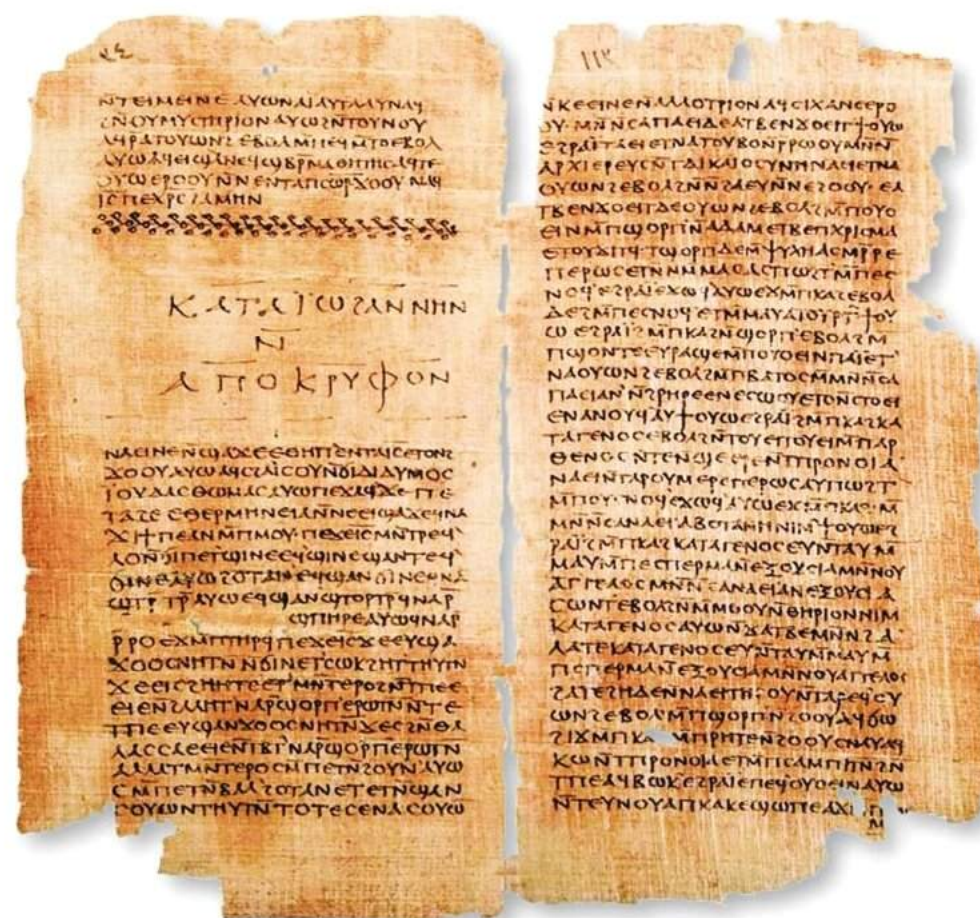 ⲛ̄ⲧⲉⲓⲙⲉⲓⲛⲉ ⲁⲩⲱ ⲛⲁⲓ ⲁⲩⲧⲁⲁⲩ ⲛⲁϥ
ϩⲛ̄ⲟⲩⲙⲩⲥⲧⲏⲣⲓⲟⲛ ⲁⲩⲱ ϩⲛ̄ⲧⲟⲩⲛⲟⲩ
ⲁϥⲣ̄ⲁⲧⲟⲩⲱⲛϩ ⲉⲃⲟⲗ ⲙ̄ⲡⲉϥⲙ̄ⲧⲟ ⲉⲃⲟⲗ
ⲁⲩⲱ ⲁϥⲉⲓ ϣⲁ ⲛⲉϥϣⲃⲣ̄ⲙⲁⲑⲏⲧⲏⲥ ⲁϥⲧⲉ
ⲟⲩⲱ ⲉⲣⲟⲟⲩ ⲛ̄ⲛⲉⲛⲧⲁⲡⲥⲱ̅ⲣ̅ ϫⲟⲟⲩ ⲛⲁϥ
ⲓ̅ⲥ̅ ⲡⲉⲭ̅ⲣ̅ⲥ̅ ϩⲁⲙⲏⲛ
ⲕⲁⲧⲁ ⲓ̈ⲱϩⲁⲛⲛⲏⲛ
ⲛ̄
ⲁⲡⲟⲕⲣⲩⲫⲟⲛ
ⲛⲁⲉⲓ ⲛⲉ ⲛ̄ϣⲁϫⲉ ⲉⲑⲏⲡ ⲉⲛⲧⲁⲓ̅ⲥ̅ ⲉⲧⲟⲛϩ
ϫⲟⲟⲩ ⲁⲩⲱ ⲁϥⲥϩⲁⲓ̈ⲥⲟⲩ ⲛ̄ϭⲓ ⲇⲓⲇⲩⲙⲟⲥ
ⲓ̈ⲟⲩⲇⲁⲥ ⲑⲱⲙⲁⲥ ⲁⲩⲱ ⲡⲉϫⲁϥ ϫⲉ ⲡⲉ
ⲧⲁϩⲉ ⲉⲑⲉⲣⲙⲏⲛⲉⲓⲁ ⲛ̄ⲛⲉⲉⲓϣⲁϫⲉ ϥⲛⲁ
ϫⲓ ϯⲡⲉ ⲁⲛ ⲙ̄ⲡⲙⲟⲩ ⲡⲉϫⲉ ⲓ̅ⲥ̅ ⲙⲛ̄ⲧⲣⲉϥ
ⲗⲟ ⲛ̄ϭⲓ ⲡⲉⲧϣⲓⲛⲉ ⲉϥϣⲓⲛⲉ ϣⲁⲛⲧⲉϥ
ϭⲓⲛⲉ ⲁⲩⲱ ϩⲟⲧⲁⲛ ⲉϥϣⲁⲛϭⲓⲛⲉ ϥⲛⲁ
ϣⲧⲣ̄ⲧⲣ̄ ⲁⲩⲱ ⲉϥϣⲁⲛϣⲧⲟⲣⲧⲣ̄ ϥⲛⲁⲣ̄
ϣⲡⲏⲣⲉ ⲁⲩⲱ ϥⲛⲁⲣ̄
ⲣ̄ⲣⲟ ⲉϫⲙ̄ ⲡⲧⲏⲣϥ ⲡⲉϫⲉ ⲓ̅ⲥ̅ ϫⲉ ⲉⲩϣⲁ
ϫⲟⲟⲥ ⲛⲏⲧⲛ̄ ⲛ̄ϭⲓ ⲛⲉⲧⲥⲱⲕ ϩⲏⲧ ⲧⲏⲩⲧⲛ̄
ϫⲉ ⲉⲓⲥϩⲏⲏⲧⲉ ⲉⲧⲙⲛ̄ⲧⲉⲣⲟ ϩⲛ̄ ⲧⲡⲉ ⲉ
ⲉⲓⲉ ⲛ̄ϩⲁⲗⲏⲧ ⲛⲁⲣ̄ ϣⲟⲣⲡ ⲉⲣⲱⲧⲛ̄ ⲛ̄ⲧⲉ
ⲧⲡⲉ ⲉⲩϣⲁⲛϫⲟⲟⲥ ⲛⲏⲧⲛ̄ ϫⲉ ⲥϩⲛ̄ ⲑⲁ
ⲗⲁⲥⲥⲁ ⲉⲉⲓⲉ ⲛ̄ⲧⲃ̄ⲧ ⲛⲁⲣ̄ ϣⲟⲣⲡ ⲉⲣⲱⲧⲛ̄
ⲁⲗⲗⲁ ⲧⲙⲛ̄ⲧⲉⲣⲟ ⲥⲙ̄ⲡⲉⲧⲛ̄ϩⲟⲩⲛ ⲁⲩⲱ
ⲥⲙ̄ⲡⲉⲧⲛ̄ⲃⲁⲗ ϩⲟⲧⲁⲛ ⲉⲧⲉⲧⲛ̄ϣⲁⲛ
ⲥⲟⲩⲱⲛ ⲧⲏⲩⲧⲛ̄ ⲧⲟⲧⲉ ⲥⲉⲛⲁⲥⲟⲩⲱ
ⲛ̄ⲕⲉⲉⲓⲛⲉ ⲛ̄ⲁⲗⲗⲟⲧⲣⲓⲟⲛ
ⲉϩⲣⲁⲓ̈
ⲁⲣⲭⲓⲉⲣⲉⲩⲥ ⲛ̄ⲧⲇⲓⲕⲁⲓⲟⲥⲩⲛⲏ
ⲟⲩⲱⲛϩ ⲉⲃⲟⲗ ϩⲛ̄ⲛ̄ϩⲁⲉⲩ ⲛ̄ⲛϩⲟⲟⲩ ⲉⲧ
ⲧⲃⲉ ⲛ̄ϫⲟⲉⲓⲧ ⲇⲉ ⲟⲩⲱⲛϩ ⲉⲃⲟⲗ ϩⲙ̄ⲡⲟⲩⲟ
ⲉⲓⲛ ⲙ̄ⲡϣⲟⲣⲡ ⲛ̄ⲁⲇⲁⲙ ⲉⲧⲃⲉ ⲡⲭⲣⲓⲥⲙⲁ
ⲧϣⲟⲣⲡ ⲇⲉ ⲙ̄ⲯⲩⲭⲏ ⲁⲥⲙ̄ⲣ̄ⲣⲉ
ⲡⲉⲣⲱⲥ ⲉⲧⲛⲙ̄ⲙⲁⲥ ⲁⲥⲡⲱϩⲧ ⲙ̄ⲡⲉⲥ
ⲥⲛⲟϥ ⲉϩⲣⲁⲓ̈ ⲉϫⲱϥ ⲁⲩⲱ ⲉϫⲙ̄ⲡⲕⲁϩ ⲉⲃⲟⲗ
ⲇⲉ ϩⲙ̄ⲡⲉⲥⲛⲟϥ ⲉⲧⲙ̄ⲙⲁⲩ ⲁⲡⲟⲩⲣⲧ ϯⲟⲩ
ⲱ ⲉϩⲣⲁⲓ̈ ϩⲙ̄ⲡⲕⲁϩ ⲛ̄ϣⲟⲣⲡ ⲉⲃⲟⲗ ϩⲙ̄
ⲡϣⲟⲛⲧⲉ ⲉⲩⲣⲁϣⲉ ⲙ̄ⲡⲟⲩⲟⲉⲓⲛ ⲡⲁⲓ̈ ⲉⲧ
ⲛⲁⲟⲩⲱⲛϩ ⲉⲃⲟⲗ ϩⲙ̄ⲡⲃⲁⲧⲟⲥ ⲙⲛ̄ⲛ̄ⲥⲁ
ⲡⲁⲉⲓ ⲁⲛϩⲣⲏⲣⲉ ⲉⲛⲉⲥⲱⲟⲩ ⲉⲧⲟⲛⲥⲧⲟⲉⲓ
ⲉⲛⲁⲛⲟⲩϥ ⲁⲩϯⲟⲩⲱ ⲉϩⲣⲁⲓ̈ ϩⲙ̄ⲡⲕⲁϩ ⲕⲁ
ⲧⲁ ⲅⲉⲛⲟⲥ ⲉⲃⲟⲗ ϩⲛ̄ⲧⲟⲩⲉⲓⲧⲟⲩⲉⲓ ⲙ̄ⲡⲁⲣ
ⲑⲉⲛⲟⲥ ⲛ̄ⲧⲉ ⲛ̄ϣⲉⲉⲣⲉ ⲛ̄ⲧⲡⲣⲟⲛⲟⲓⲁ
ⲛⲁⲉⲓ ⲛ̄ⲧⲁⲣⲟⲩⲙⲉⲣⲉ ⲡⲉⲣⲱⲥ ⲁⲩⲡⲱϩⲧ
ⲙ̄ⲡⲟⲩⲥⲛⲟϥ ⲉϫⲱϥ ⲁⲩⲱ ⲉϫⲙ̄ⲡⲕⲁϩ
ⲙⲛ̄ⲛ̄ⲥⲁ ⲛⲁⲉⲓ ⲁⲃⲟⲧⲁⲛⲏ ⲛⲓⲙ ϯⲟⲩⲱ ⲉϩ
ⲣⲁⲓ̈ ϩⲙ̄ⲡⲕⲁϩ ⲕⲁⲧⲁ ⲅⲉⲛⲟⲥ ⲉⲩⲛ̄ⲧⲁⲩ ⲙ̄
ⲙⲁⲩ ⲙ̄ⲡⲉⲥⲡⲉⲣⲙⲁ ⲛ̄ⲉⲝⲟⲩⲥⲓⲁ ⲙⲛ̄ⲛⲟⲩ
ⲁⲅⲅⲉⲗⲟⲥ ⲙⲛ̄ⲛ̄ⲥⲁ ⲛⲁⲉⲓ ⲁⲛⲉⲝⲟⲩⲥⲓⲁ
ⲥⲱⲛⲧ ⲉⲃⲟⲗ ϩⲛ̄ⲙ̄ⲙⲟⲩ ⲛ̄ⲑⲏⲣⲓⲟⲛ ⲛⲓⲙ
ⲕⲁⲧⲁ ⲅⲉⲛⲟⲥ ⲁⲩⲱ ⲛ̄ϫⲁⲧⲃⲉ ⲙⲛ̄ⲛ̄ϩⲁ
ⲗⲁⲧⲉ ⲕⲁⲧⲁ ⲅⲉⲛⲟⲥ ⲉⲩⲛ̄ⲧⲁⲩ ⲙ̄ⲙⲁⲩ ⲙ̄
ⲡⲥⲡⲉⲣⲙⲁ ⲛ̄ⲉⲝⲟⲩⲥⲓⲁ ⲙⲛ̄ⲛⲟⲩⲁⲅⲅⲉⲗⲟⲥ
ϩⲁⲧⲉϩⲏ ⲇⲉ ⲛ̄ⲛⲁⲉⲓ ⲧⲏⲣⲟⲩ ⲛ̄ⲧⲁⲣⲉϥⲟⲩ
ⲱⲛϩ ⲉⲃⲟⲗ ⲙ̄ⲡϣⲟⲣⲡ ⲛ̄ϩⲟⲟⲩ ⲁϥϭⲱ
ϩⲓϫⲙ̄ⲡⲕⲁϩ
ⲕⲱ ⲛ̄ⲧⲡⲣⲟⲛⲟⲓⲁ ⲉⲧⲙ̄ⲡⲥⲁⲙⲡⲓⲧⲛ̄ ϩⲛ̄
ⲧⲡⲉ ⲁϥⲃⲱⲕ ⲉϩⲣⲁⲓ̈ ⲉⲡⲉϥⲟⲩⲟⲉⲓⲛ ⲁⲩⲱ
ⲛ̄ⲧⲉⲩⲛⲟⲩ ⲁⲡⲕⲁⲕⲉ ϣⲱⲡⲉ